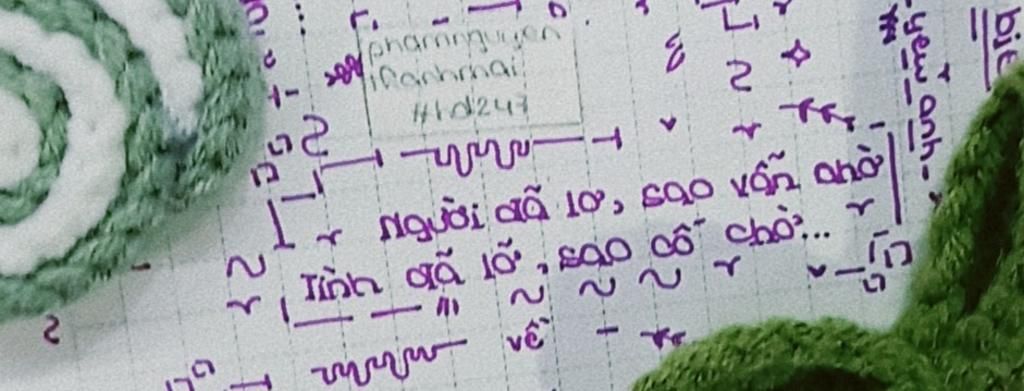 phamnguyen
thanhmai
#hd247
Người đã lơ, sao vẫn chờ
Tình đã lỡ, sao cố chờ...
về
yêu anh